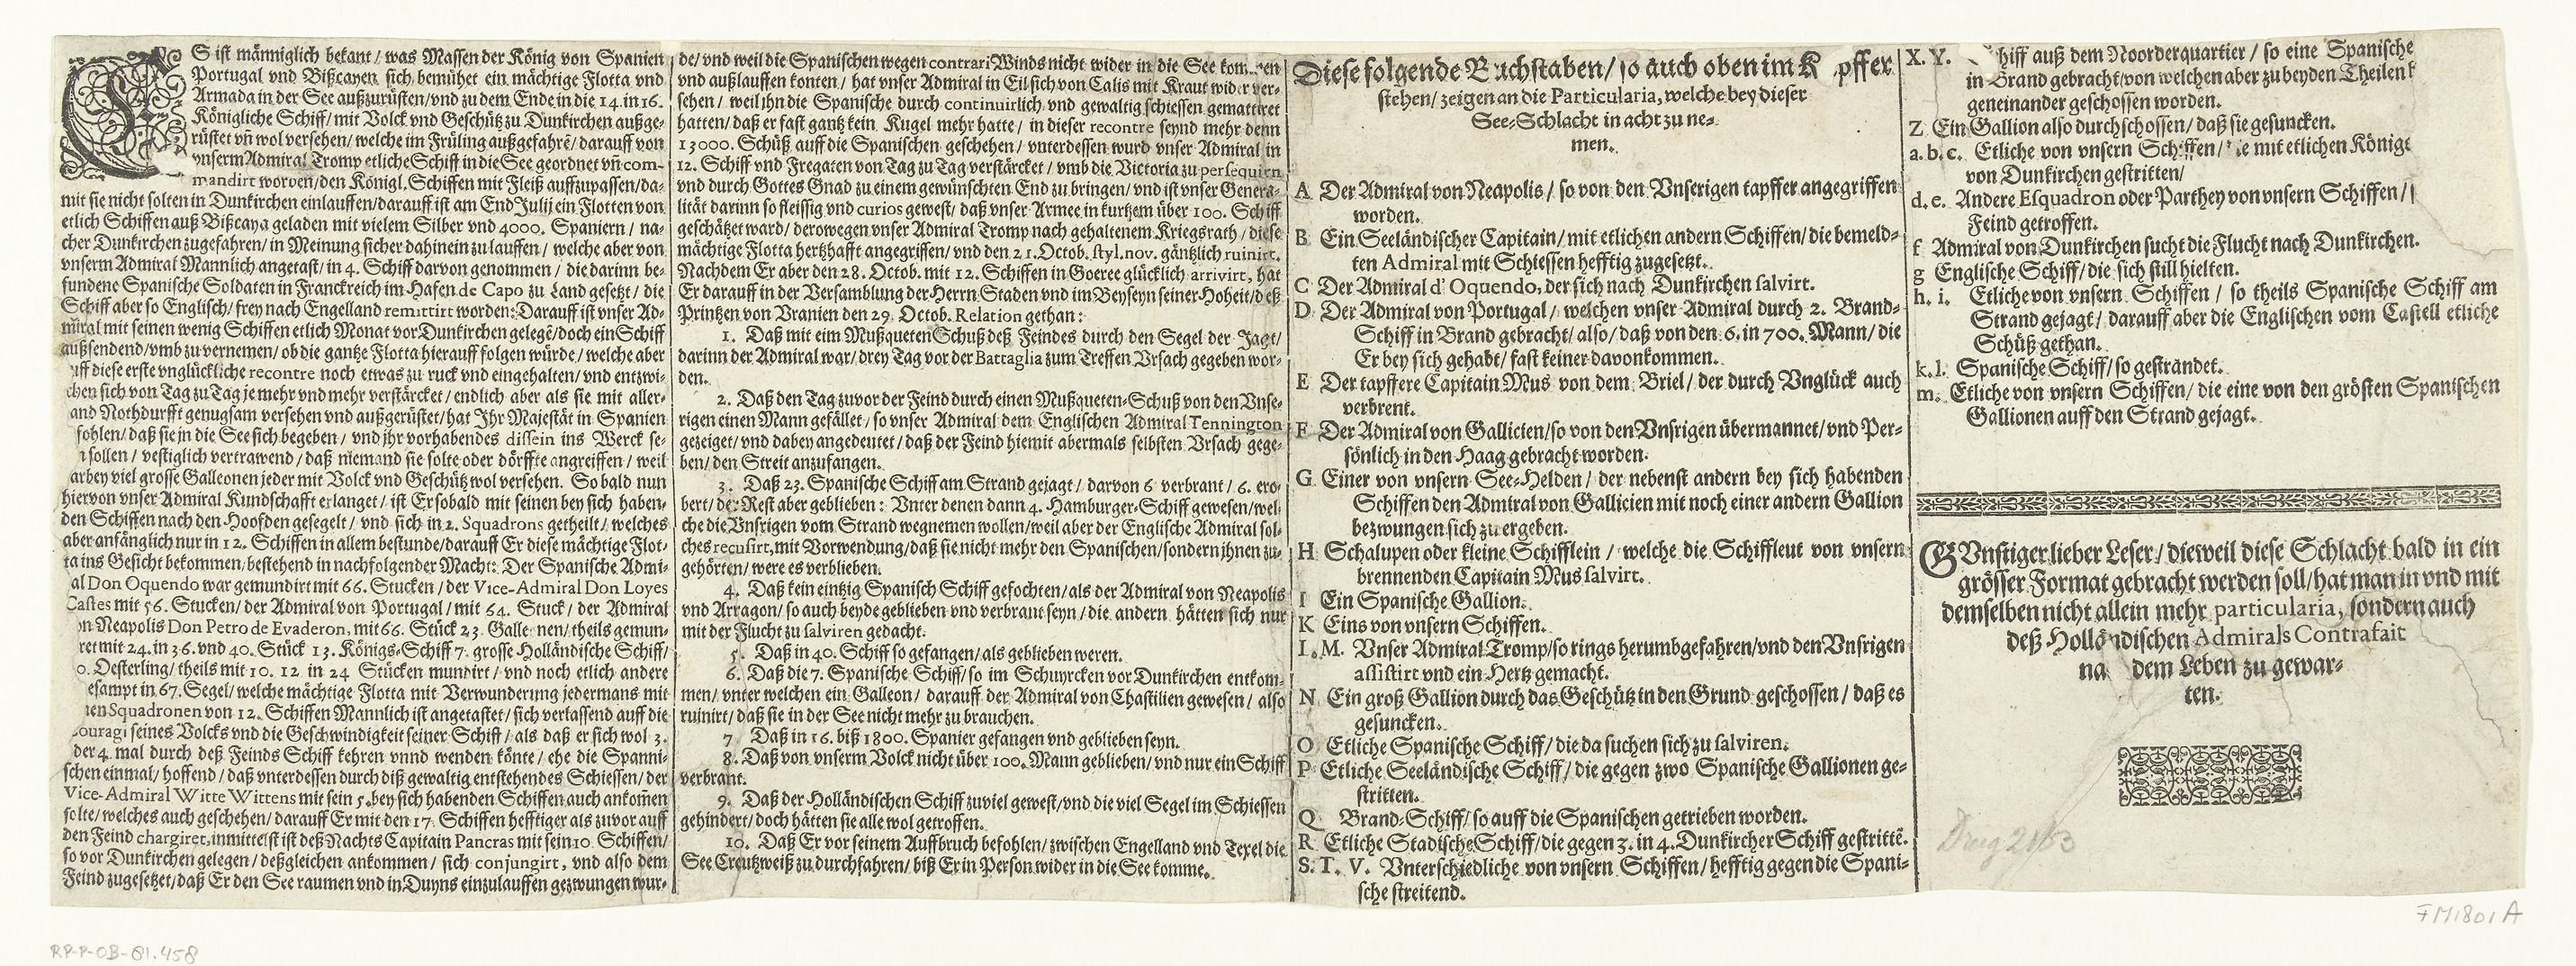 ES ist männiglich bekant / was Massen der König von Spanien
Portugal vnd Bißcayen sich bemühet ein mächtige Flotta vnd
Armada in der See außzurüsten / vnd zu dem Ende in die 14. in 16.
Königliche Schiff / mit Volck vnd Geschütz zu Dunkirchen außge-
rüstet vñ wol versehen / welche im Früling außgefahrē / darauff von
vnserm Admiral Tromp etliche Schiff in die See geordnet vñ com-
mandirt worden / den Königl. Schiffen mit Fleiß auffzupassen / da-
mit sie nicht solten in Dunkirchen einlauffen / darauff ist am End Julij ein Flotten von
etlich Schiffen auß Bißcaya geladen mit vielem Silber vnd 4000. Spaniern / na-
cher Dunkirchen zugefahren / in Meinung sicher dahinein zu lauffen / welche aber von
vnserm Admiral Mannlich angetast / in 4. Schiff darvon genommen / die darinn be-
fundene Spanische Soldaten in Franckreich im Hafen de Capo zu Land gesetzt / die
Schiff aber so Englisch / frey nach Engelland remittirt worden: Darauff ist vnser Ad-
miral mit seinen wenig Schiffen etlich Monat vor Dunkirchen gelegē / doch ein Schiff
außsendend / vmb zu vernemen / ob die gantze Flotta hierauff folgen würde / welche aber
uff diese erste vnglückliche recontre noch etwas zu ruck vnd eingehalten / vnd entzwi-
chen sich von Tag zu Tag je mehr vnd mehr verstärcket / endlich aber als sie mit aller-
and Nothdurfft genugsam versehen vnd außgerüstet / hat Ihr Majestät in Spanien
fohlen / daß sie in die See sich begeben / vnd ihr vorhabendes dissein ins Werck se-
n sollen / vestiglich vertrawend / daß niemand sie solte oder dörffte angreiffen / weil
arbey viel grosse Galleonen jeder mit Volck vnd Geschütz wol versehen. So bald nun
hiervon vnser Admiral Kundschafft erlanget / ist Er sobald mit seinen bey sich haben-
den Schiffen nach den Hoofden gesegelt / vnd sich in 2. Squadrons getheilt / welches
aber anfänglich nur in 12. Schiffen in allem bestunde / darauff Er diese mächtige Flot-
ta ins Gesicht bekommen / bestehend in nachfolgender Macht: Der Spanische Admi-
al Don Oquendo war gemundirt mit 66. Stucken / der Vice-Admiral Don Loyes
Castes mit 56. Stucken / der Admiral von Portugal / mit 64. Stuck / der Admiral
on Neapolis Don Petro de Evaderon, mit 66. Stück 23. Galle nen / theils gemun-
ret mit 24. in 36. vnd 40. Stück 13. Königs-Schiff 7. grosse Holländische Schiff /
0. Oesterling / theils mit 10. 12 in 24 Stücken mundirt / vnd noch etlich andere
esampt in 67. Segel / welche mächtige Flotta mit Verwunderung jedermans mit
ien Squadronen von 12. Schiffen Mannlich ist angetastet / sich verlassend auff die
couragi seines Volcks vnd die Geschwindigkeit seiner Schiff / als daß er sich wol 3.
der 4. mal durch deß Feinds Schiff kehren vnnd wenden könte / ehe die Spanni-
schen einmal / hoffend / daß vnterdessen durch diß gewaltig entstehendes Schiessen / der
Vice-Admiral Witte Wittens mit sein 5. bey sich habenden Schiffen auch ankom̄en
solte / welches auch geschehen / darauff Er mit den 17. Schiffen hefftiger als zuvor auff
den Feind chargiret, inmittelst ist deß Nachts Capitain Pancras mit sein 10. Schiffen /
so vor Dunkirchen gelegen / deßgleichen ankommen / sich conjungirt, vnd also dem
Feind zugesetzet / daß Er den See raumen vnd in Duyns einzulauffen gezwungen wur-
de / vnd weil die Spanischen wegen contrari Winds nicht wider in die See kommen
vnd außlauffen konten / hat vnser Admiral in Eil sich von Calis mit Kraut wider ver-
sehen / weil ihn die Spanische durch continuirlich vnd gewaltig schiessen gemattiret
hatten / daß er fast gantz kein Kugel mehr hatte / in dieser recontre seynd mehr denn
13000. Schüß auff die Spanischen geschehen / vnterdessen wurd vnser Admiral in
12. Schiff vnd Fregaten von Tag zu Tag verstärcket / vmb die Victoria zu persequien
vnd durch Gottes Gnad zu einem gewünschten End zu bringen / vnd ist vnser Genera-
lität darinn so fleissig vnd curios gewest / daß vnser Armee in kurtzem über 100. Schiff
geschätzet ward / derowegen vnser Admiral Tromp nach gehaltenem Kriegsrath / diese
mächtige Flotta hertzhafft angegriffen / vnd den 21. Octob. styl. nov. gäntzlich ruinirt.
Nachdem Er aber den 28. Octob. mit 12. Schiffen in Goeree glücklich arrivirt, hat
Er darauff in der Versamblung der Herrn Staden vnd im Beyseyn seiner Hoheit / deß
Printzen von Vranien den 29. Octob. Relation gethan:
1. Daß mit eim Mußqueten Schuß deß Feindes durch den Segel der Jagt /
darinn der Admiral war / drey Tag vor der Battaglia zum Treffen Vrsach gegeben wor-
den.
2. Daß den Tag zuvor der Feind durch einen Mußqueten-Schuß von den Vnse-
rigen einen Mann gefället / so vnser Admiral dem Englischen Admiral Tennington
gezeiget / vnd dabey angedeutet / daß der Feind hiemit abermals selbsten Vrsach gege-
ben / den Streit anzufangen.
3. Daß 23. Spanische Schiff am Strand gejagt / darvon 6 verbrant / 6. ero-
bert / der Rest aber geblieben: Vnter denen dann 4. Hamburger-Schiff gewesen / wel-
che die Vnsrigen vom Strand wegnemen wollen / weil aber der Englische Admiral sol-
ches recusirt, mit Vorwendung / daß sie nicht mehr den Spanischen / sondern ihnen zu-
gehörten / were es verblieben.
4. Daß kein eintzig Spanisch Schiff gefochten / als der Admiral von Neapolis
vnd Arragon / so auch beyde geblieben vnd verbrant seyn / die andern hätten sich nur
mit der Flucht zu salviren gedacht.
5. Daß in 40. Schiff so gefangen / als geblieben weren.
6. Daß die 7. Spanische Schiff / so im Schuyrcken vor Dunkirchen entkom-
men / vnter welchen ein Galleon / darauff der Admiral von Chastilien gewesen / also
ruinirt / daß sie in der See nicht mehr zu brauchen.
7 Daß in 16. biß 1800. Spanier gefangen vnd geblieben seyn.
8. Daß von vnserm Volck nicht über 100. Mann geblieben / vnd nur ein Schiff
verbrant.
9. Daß der Holländischen Schiff zuviel gewest / vnd die viel Segel im Schiessen
gehindert / doch hätten sie alle wol getroffen.
10. Daß Er vor seinem Auffbruch befohlen / zwischen Engelland vnd Texel die
See Creutzweiß zu durchfahren / biß Er in Person wider in die See komme.
Diese folgende Buchstaben / so auch oben im K pffer
stehen / zeigen an die Particularia, welche bey dieser
See-Schlacht in acht zu ne-
men.
A Der Admiral von Neapolis / so von den Vnserigen tapffer angegriffen
worden.
B Ein Seeländischer Capitain / mit etlichen andern Schiffen / die bemeld-
ten Admiral mit Schiessen hefftig zugesetzt.
C Der Admiral d'Oquendo, der sich nach Dunkirchen salvirt.
D Der Admiral von Portugal / welchen vnser Admiral durch 2. Brand-
Schiff in Brand gebracht / also / daß von den 6. in 700. Mann / die
Er bey sich gehabt / fast keiner davonkommen.
E Der tapffere Capitain Mus von dem Briel / der durch Vnglück auch
verbrent.
F Der Admiral von Gallicien / so von den Vnsrigen übermannet / vnd Per-
sönlich in den Haag gebracht worden.
G Einer von vnsern See-Helden / der nebenst andern bey sich habenden
Schiffen den Admiral von Gallicien mit noch einer andern Gallion
bezwungen sich zu ergeben.
H Schalupen oder kleine Schifflein / welche die Schiffleut von vnsern
brennenden Capitain Mus salvirt.
I Ein Spanische Gallion.
K Eins von vnsern Schiffen.
L. M. Vnser Admiral Tromp / so rings herumbgefahren / vnd den Vnsrigen
assistirt vnd ein Hertz gemacht.
N Ein groß Gallion durch das Geschütz in den Grund geschossen / daß es
gesuncken.
O Etliche Spanische Schiff / die da suchen sich zu salviren.
P Etliche Seeländische Schiff / die gegen zwo Spanische Gallionen ge-
stritten.
Q Brand-Schiff / so auff die Spanischen getrieben worden.
R Etliche Stadische Schiff / die gegen 3. in 4. Dunkircher Schiff gestrittē.
S. T. V. Vnterschiedliche von vnsern Schiffen / hefftig gegen die Spani-
sche streitend.
X. Y. hiff auß dem Noorderquartier / so eine Spanische
in Brand gebracht / von welchen aber zu beyden Theilen
geneinander geschossen worden.
Z Ein Gallion also durchschossen / daß sie gesuncken.
a. b. c. Etliche von vnsern Schiffen / e mit etlichen Könige
von Dunkirchen gestritten /
d. e. Andere Esquadron oder Parthey von vnsern Schiffen /
Feind getroffen.
f Admiral von Dunkirchen sucht die Flucht nach Dunkirchen.
g Englische Schiff / die sich still hielten.
h. i. Etliche von vnsern Schiffen / so theils Spanische Schiff am
Strand gejagt / darauff aber die Englischen vom Castell etliche
Schüß gethan.
k. l. Spanische Schiff / so gestrandet.
m. Etliche von vnsern Schiffen / die eine von den grösten Spanischen
Gallionen auff den Strand gejagt.
GVnstiger lieber Leser / dieweil diese Schlacht bald in ein
grösser Format gebracht werden soll / hat man in vnd mit
demselben nicht allein mehr particularia, sondern auch
deß Holländischen Admirals Contrafait
na dem Leben zu gewar-
ten.
FM 1801 A
RP-P-OB-81.458